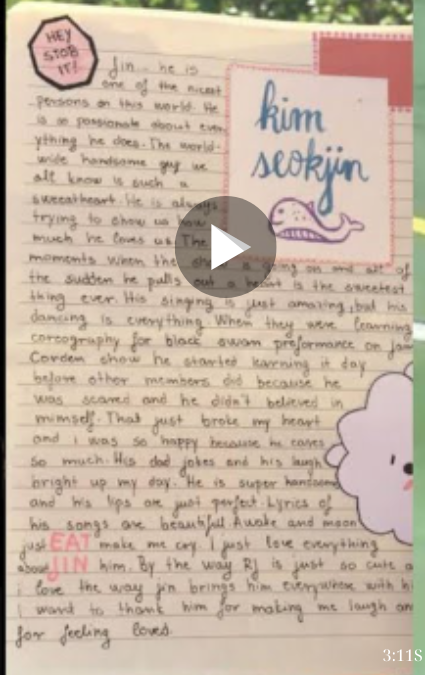 HEY
STOB
IT!
Jin... he is
one of the nicest
persons on this world. He
is so passionate about ever
ything he does. The world-
wide handsome guy we
all know is such a
sweatheart. He is always
trying to show us how
much he loves us. The
kim
seokjin
moments when the show is going on and all of
the sudden he pulls out a heart is the sweetest
thing ever. His singing is just amazing, but his
dancing is everything. When they were learning
coreography for black swan preformance on Jam
Corden show he started learning it day
before other members did because he
was scared and he didn't believed in
mimself. That just broke my heart
and i was so happy because he cares
so much. His dad jokes and his laugh
bright up my day. He is super handsome
and his lips are just perfect. Lyrics of
his songs are beautiful. Awake and moon
just make me cry. I just love everything
EAT
JIN
about him. By the way RJ is just so cute a
i love the way jin brings him everywhere with hi
i want to thank him for making me laugh an
for feeling loved.
3:11